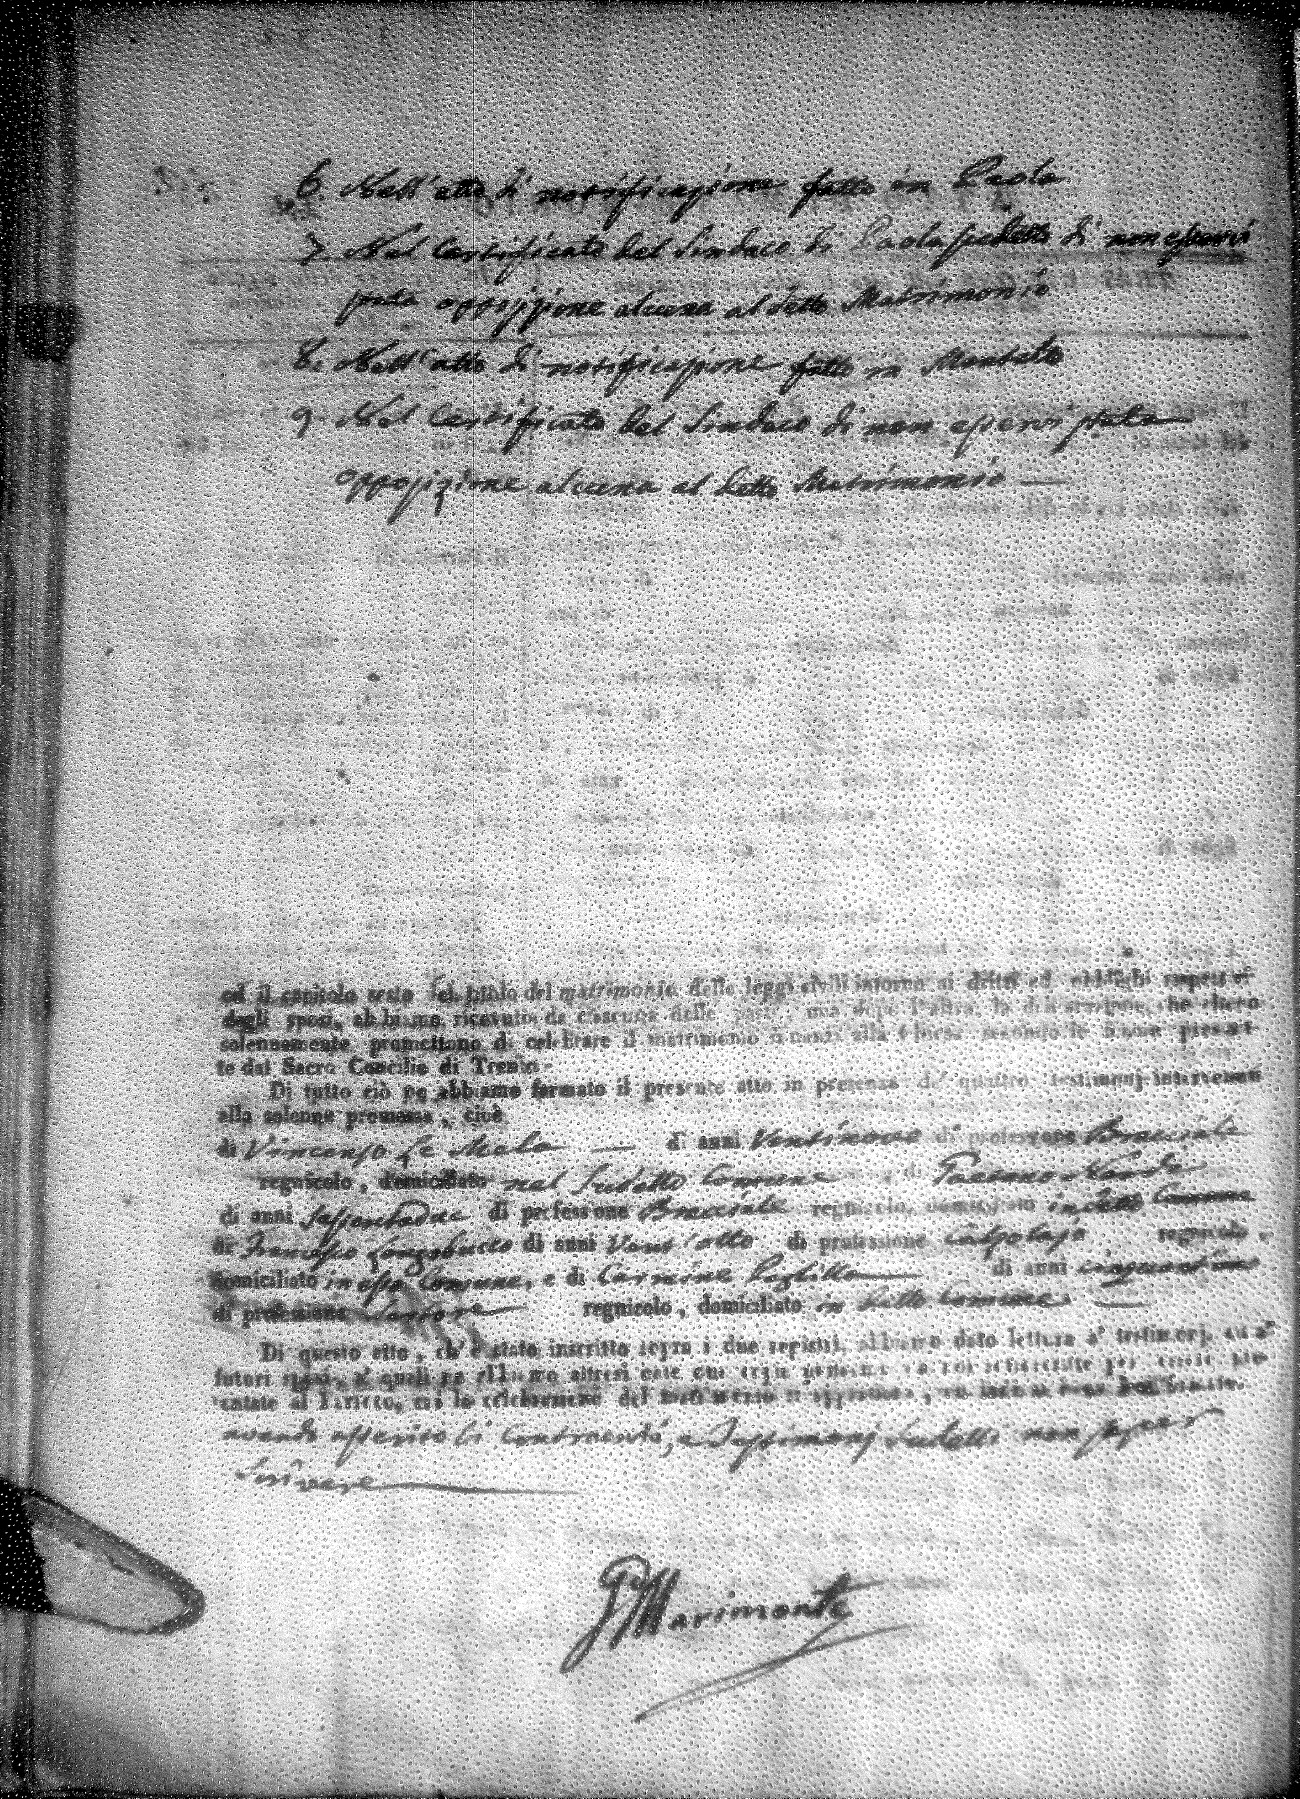 6. Nell'atto di notificazione fatto in Paola
7. Nel Certificato del Sindaco di Paola sudetto di non essersi
fatta opposizione alcuna al detto Matrimonio
8. Nell'atto di notificazione fatto in
9. Nel Certificato del Sindaco di non essersi fatta
opposizione alcuna al detto Matrimonio —
ed il capitolo sesto del titolo del matrimonio delle leggi civili intorno ai dritti ed obblighi rispettivi
degli sposi, abbiamo ricevuto da ciascuna delle parti, una dopo l'altra, la dichiarazione, che elleno
solennemente promettono di celebrare il matrimonio innanzi alla Chiesa secondo le forme prescrit-
te dal Sacro Concilio di Trento.
Di tutto ciò ne abbiamo formato il presente atto in presenza de' quattro testimonj intervenuti
alla solenne promessa, cioè
di Vincenzo Le Mela — di anni Ventinove di professione Bracciale
regnicolo, domiciliato nel sudetto Comune, di
di anni Sessantadue di professione Bracciale regnicolo, domiciliato in detto Comune
di Francesco Longobucco di anni Vent'otto di professione Calzolajo regnicolo,
domiciliato in esso Comune, e di Carmine di anni
di professione Sartore regnicolo, domiciliato in detto Comune. —
Di questo atto, ch'è stato inscritto sopra i due registri, abbiamo dato lettura a' testimonj, ed a'
futuri sposi, a' quali ne abbiamo altresì date due copie uniformi da noi sottoscritte per essere pre-
sentate al Parroco, cui la celebrazione del matrimonio si appartiene, ed indi si sono da noi firmate.
avendo asserito li Contraenti, e Testimonj sudetti non saper
Scrivere —
Marimonte